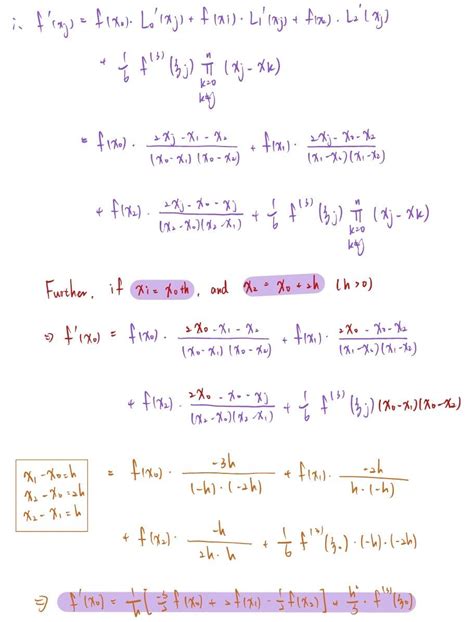 ∴ f'(xj) = f(x0)· L0'(xj) + f(x1)· L1'(xj) + f(x2)· L2'(xj)
+ 1/6 f^(3)(ξj) ∏_{k=0, k≠j}^{n} (xj - xk)
= f(x0) · (2xj - x1 - x2)/((x0-x1)(x0-x2)) + f(x1)· (2xj - x0 - x2)/((x1-x2)(x1-x2))
+ f(x2) · (2xj - x0 - xj)/((x2-x0)(x2-x1)) + 1/6 f^(3)(ξj) ∏_{k=0, k≠j}^{n} (xj - xk)
Further, if x1 = x0+h, and x2 = x0 + 2h (h>0)
⇒ f'(x0) = f(x0) · (2x0 - x1 - x2)/((x0-x1)(x0-x2)) + f(x1)· (2x0 - x0 - x2)/((x1-x2)(x1-x2))
+ f(x2) · (2x0 - x0 - xj)/((x2-x0)(x2-x1)) + 1/6 f^(3)(ξj) (x0-x1)(x0-x2)
x1 - x0 = h
x2 - x0 = 2h
x2 - x1 = h
= f(x0) · -3h/((-h)·(-2h)) + f(x1)· -2h/(h·(-h))
+ f(x2) · -h/(2h·h) + 1/6 f^(3)(ξ0)·(-h)·(-2h)
⇒ f'(x0) = 1/h [ -3/2 f(x0) + 2f(x1) - 1/2 f(x2) ] + h²/3 · f^(3)(ξ0)